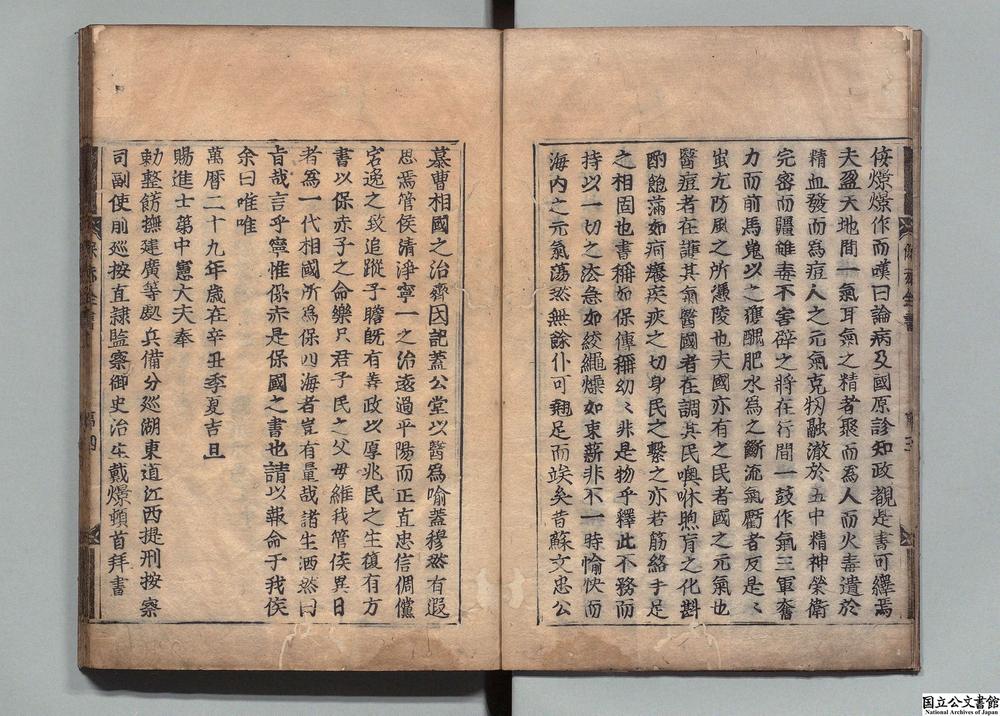 侯燝燝作而嘆曰論病及國原診知政觀是書可繹焉
夫盈天地間一氣耳氣之精者聚而為人而火毒遺於
精血發而為痘人之元氣充牣融澈於五中精神榮衛
完密而疆雖毒不害辟之將在行間一鼓作氣三軍奮
力而前馬嵬以之獲醜肥水為之斷流氣虧者反是〻
蚩亢防風之所憑陵也夫國亦有之民者國之元氣也
醫痘者在護其氣醫國者在調其民噢咻煦育之化斟
酌飽滿如疴癢疾疢之切身民之繫之亦若筋絡手足
之相固也書稱如保傳稱幼〻非是物乎釋此不務而
持以一切之法急如絞繩燥如束薪非不一時愉快而
海內之元氣蕩然無餘仆可翹足而竢矣昔蘇文忠公
慕曹相國之治齊因記蓋公堂以醫為喻蓋穆然有遐
思焉管侯清淨寧一之治遠過平陽而正直忠信倜儻
宕逸之致追蹤子瞻旣有善政以厚兆民之生復有方
書以保赤子之命樂只君子民之父毋維我管侯異日
者為一代相國所為保四海者豈有量哉諸生洒然曰
旨哉言乎寧惟保赤是保國之書也請以報命于我侯
余曰唯唯
萬曆二十九年歲在辛丑季夏吉旦
賜進士第中憲大夫奉
勅整飭撫建廣等處兵備分廵湖東道江西提刑按察
司副使前廵按直隷監察御史治生戴燝頓首拜書
保赤全書
國立公文書館
National Archives of Japan